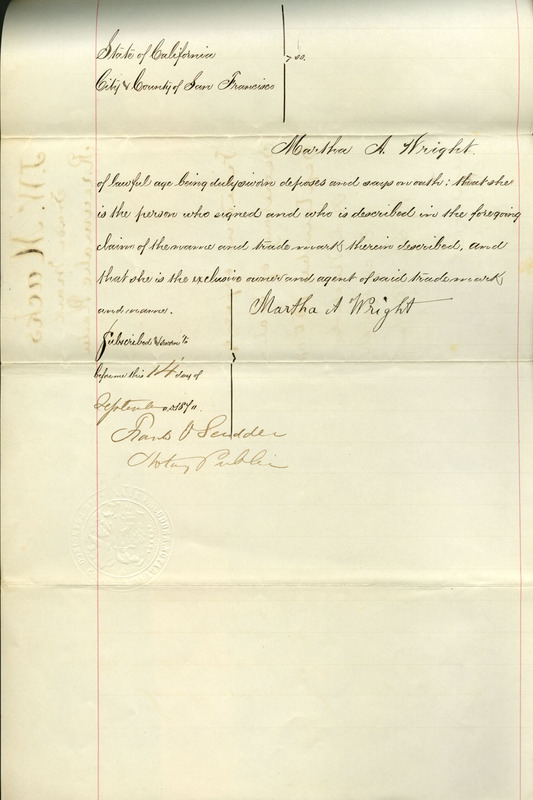 State of California
City & County of San Francisco
} ss.
Martha A. Wright
of lawful age being duly sworn deposes and says on oath: that she
is the person who signed and who is described in the foregoing
claim of the name and trade mark therein described, and
that she is the exclusive owner and agent of said trade mark
and name.
Martha A Wright
Subscribed & sworn to
before me this 14 day of
September A.D. 1870.
Frank V Scudder
Notary Public